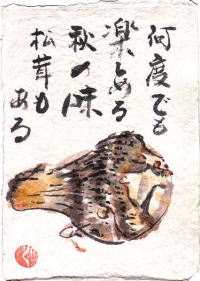 何度でも
楽しめる
秋の味
松茸も
ある